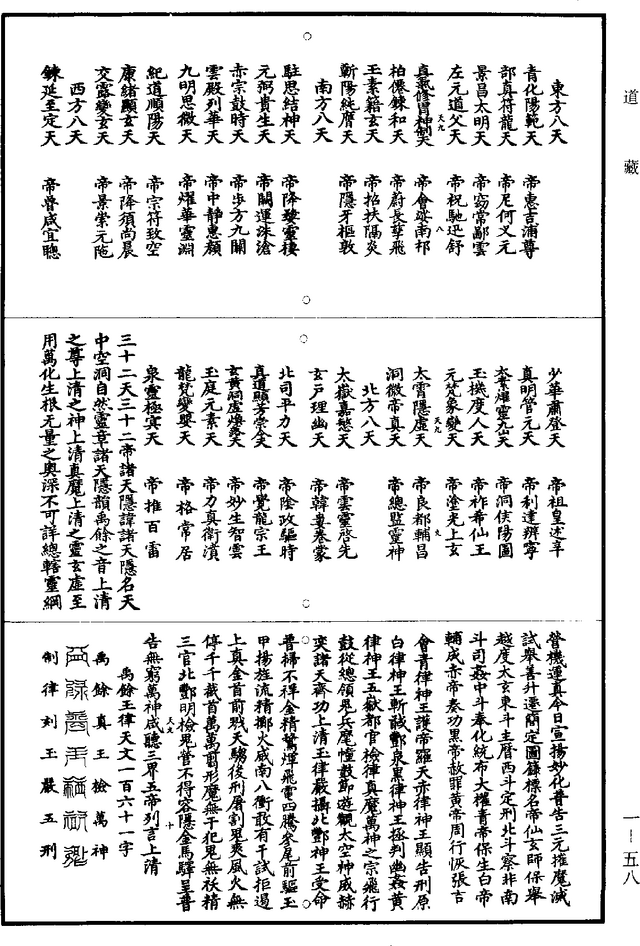 道藏
東方八天
青化陽範天　帝惠吉浦尊
部真符龍天　帝尼何义元
景昌太明天　帝窈常鄙雲
左元道父天　帝祝馳迅舒
真氣修胃神制天　帝會婆南邦
柏僊鍊和天　帝蔚長孳飛
王素籍玄天　帝招扶隔炎
斬陽純膺天　帝隱牙樞敦
南方八天
駐思結神天　帝降發靈樓
元弼貴生天　帝關運沫滄
赤宗鼓時天　帝步方九關
雲殿列華天　帝中靜惠顏
九明思微天　帝燿華靈淵
紀道順陽天　帝宗符致空
康緒顯玄天　帝降須尚晨
交露變玄天　帝景崇元陁
西方八天
鍊延至定天　帝普咸宜聰
少華肅登天　帝祖皇述辛
真明管元天　帝利達辨寧
太業燿靈九天　帝洞俠陽圓
玉機度人天　帝祚希仙王
元梵象變天　帝塗光上玄
太霄隱虛天　帝良都輔昌
洞微帝真天　帝總監靈神
北方八天
太嶽嘉憋天　帝雲靈啓先
玄戶理幽天　帝韓婁卷蒙
北司平力天　帝陰攻驅時
真道顯芳崇合天　帝覺龍宗王
玄黃洞虛煥梵天　帝妙生智雲
玉庭元素天　帝力真衛濱
龍梵變嬰天　帝格常居
泉靈極宾天　帝推百雷
三十二天三十二帝諸天隱諱諸天隱名天
中空洞自然靈章諸天隱韻禹餘之音上清
之尊上清之神上清真魔上清之靈玄虛至
用萬化生根无量之奧深不可詳總轄靈綱
管機運真今日宣揚妙化普告三元摧魔滅
試舉善升遷簡定圖籙標名帝仙玄師保舉
越度太玄東斗主曆西斗定刑北斗察非南
斗司姦中斗奉化統布大權青帝保生白帝
輔成赤帝奏功黑帝赦罪黃帝周行恢張吉
會青律神王護帝羅天赤律神王顯告刑原
白律神王斬馘酆泉黑律神王極判幽姦黃
律神王五嶽都官檢律真魔萬神之宗飛行
鼓從總領鬼兵麾幢鼓節遊觀太空神威赫
奕諸天齋功上清玉律嚴攝北酆神王受命
普掃不祥金精驚燀飛電四騰參尾前驅玉
甲揚旌流精擲火威南八衝敢有干試拒遏
上真金首前戮天騶後刑屠割鬼爽風火無
停千千截首萬萬翦形魔無干犯鬼無祅精
三官北酆明檢鬼營不得容隱金馬驛呈普
告無窮萬神咸聽三界五帝列言上清
禹餘玉律天文一百六十一字
禹餘真王檢萬神
制律刻玉嚴五刑
一—五八